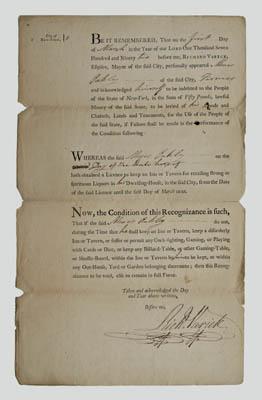 City of
New-York,
BE IT REMEMBERED, That on the first Day
of March in the Year of our LORD One Thousand Seven
Hundred and Ninety two before me, RICHARD VARICK,
Esquire, Mayor of the said City, personally appeared
of the said City,
and acknowledged himself to be indebted to the People
of the State of New-York, in the Sum of Fifty Pounds, lawful
Money of the said State, to be levied of his Goods and
Chattels, Lands and Tenements, for the Use of the People of
the said State, if Failure shall be made in the Performance of
the Condition following:
WHEREAS the said on the
Day of the
hath obtained a Licence to keep an Inn or Tavern for retailing strong or
spirituous Liquors in his Dwelling-House, in the said City, from the Date
of the said Licence until the first Day of March next.
Now, the Condition of this Recognizance is such,
That if the said do not,
during the Time that he shall keep an Inn or Tavern, keep a disorderly
Inn or Tavern, or suffer or permit any Cock-fighting, Gaming, or Playing
with Cards or Dice, or keep any Billiard-Table, or other Gaming-Table,
or Shuffle-Board, within the Inn or Tavern by him to be kept, or within
any Out-House, Yard or Garden belonging thereunto; then this Recogni-
zance to be void, else to remain in full Force.
Taken and acknowledged the Day
and Year above written,
Before me,
Richd Varick